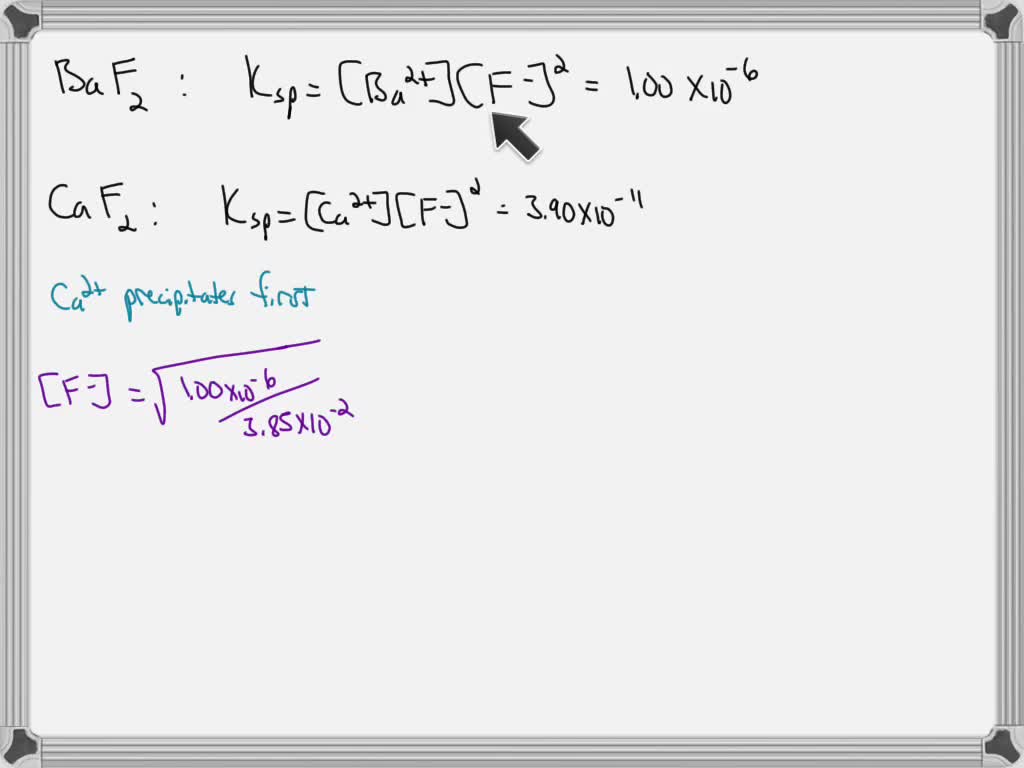 BaF₂ : Ksp = [Ba²⁺][F⁻]² = 1.00 x10⁻⁶
CaF₂ : Ksp = [Ca²⁺][F⁻]² = 3.90x10⁻¹¹
Ca²⁺ precipitates first
[F⁻] = √1.00x10⁻⁶ / 3.85x10⁻²